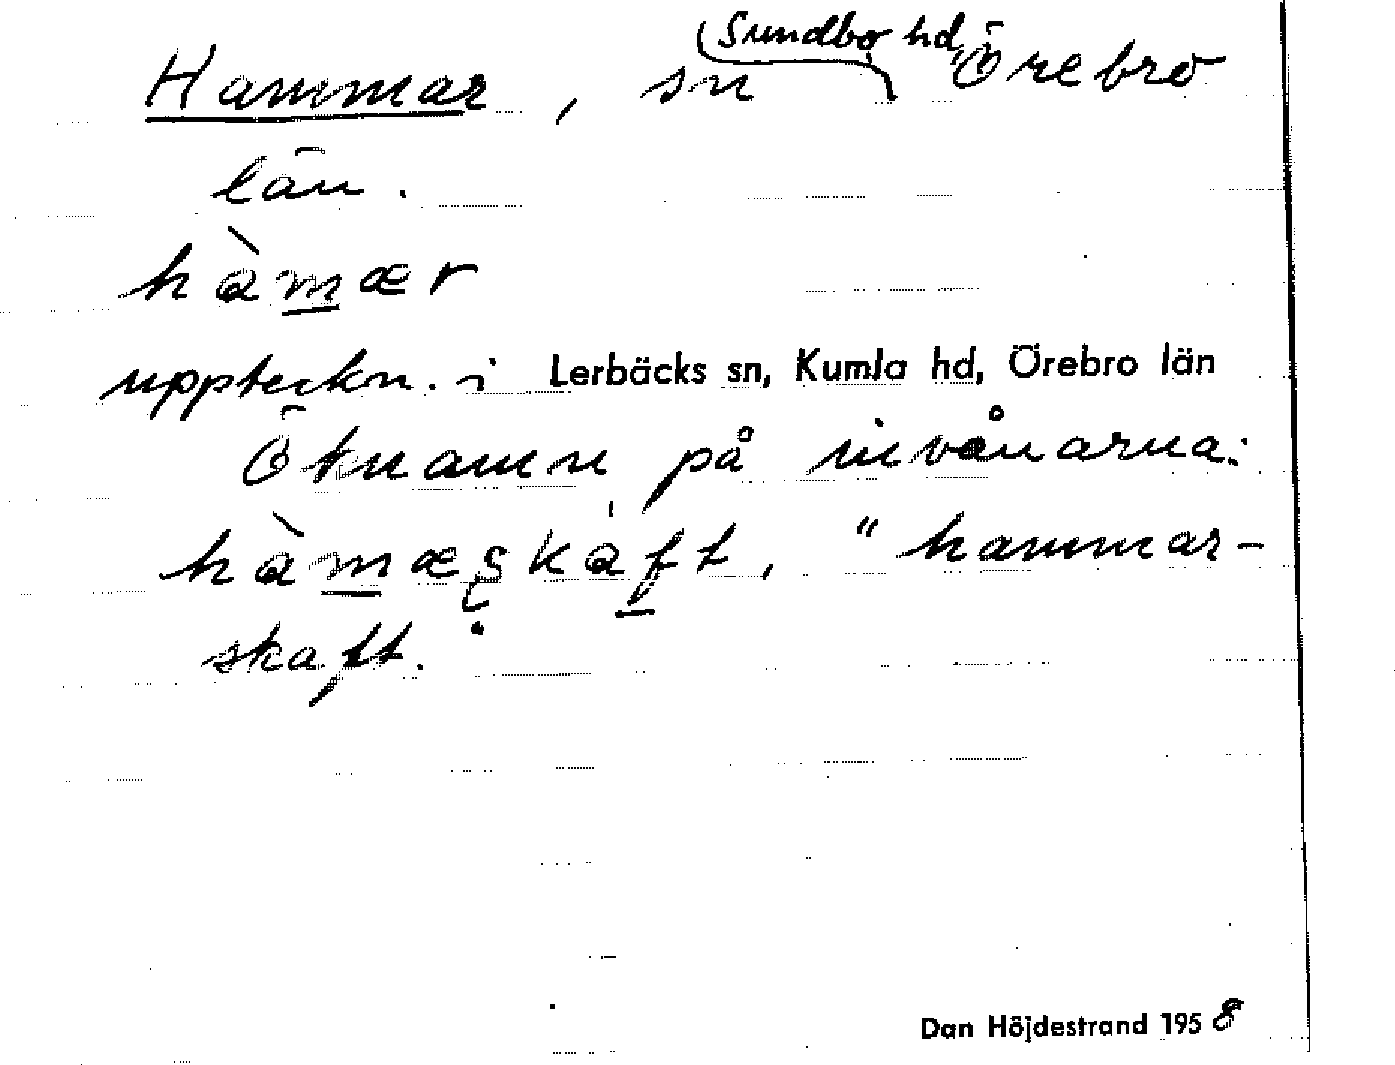 Hammar, sn Sundbo hd, Örebro
län.
hàmær
uppteckn. i Lerbäcks sn, Kumla hd, Örebro län
Öknamn på invånarna:
hàmæʂkaft, "hammar-
skaft."
Dan Höjdestrand 1958